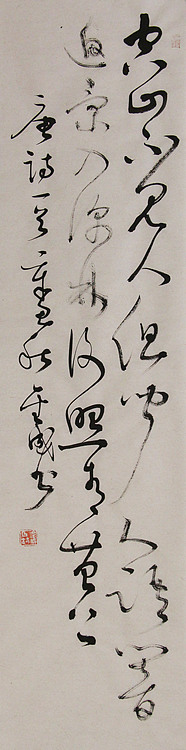 空山不見人但聞人語響
返景入深林復照青苔上
唐詩一首辛丑秋